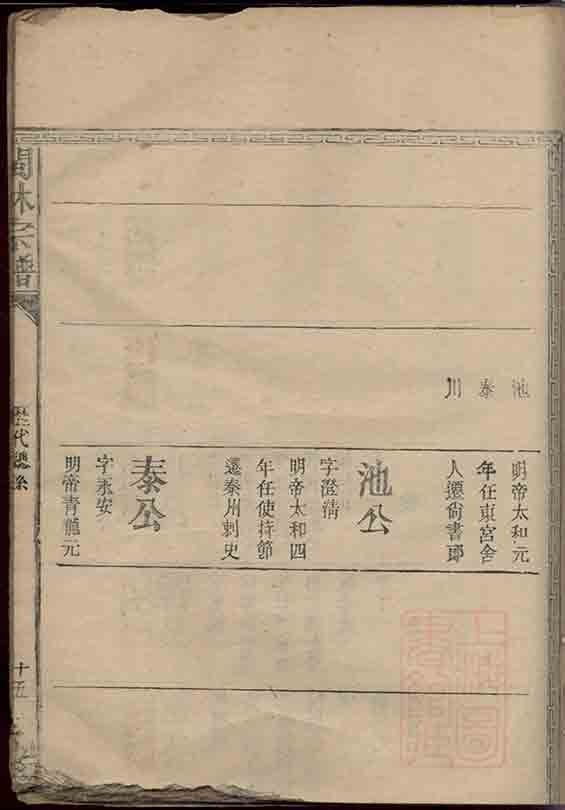 池
泰
川
明帝太和元
年任東宮舍
人遷尙書郎
池公
字澄清
明帝太和四
年任使持節
遷秦州刺史
泰公
字永安
明帝青龍元
林宗譜
歷代總系
十五
上海圖書館藏